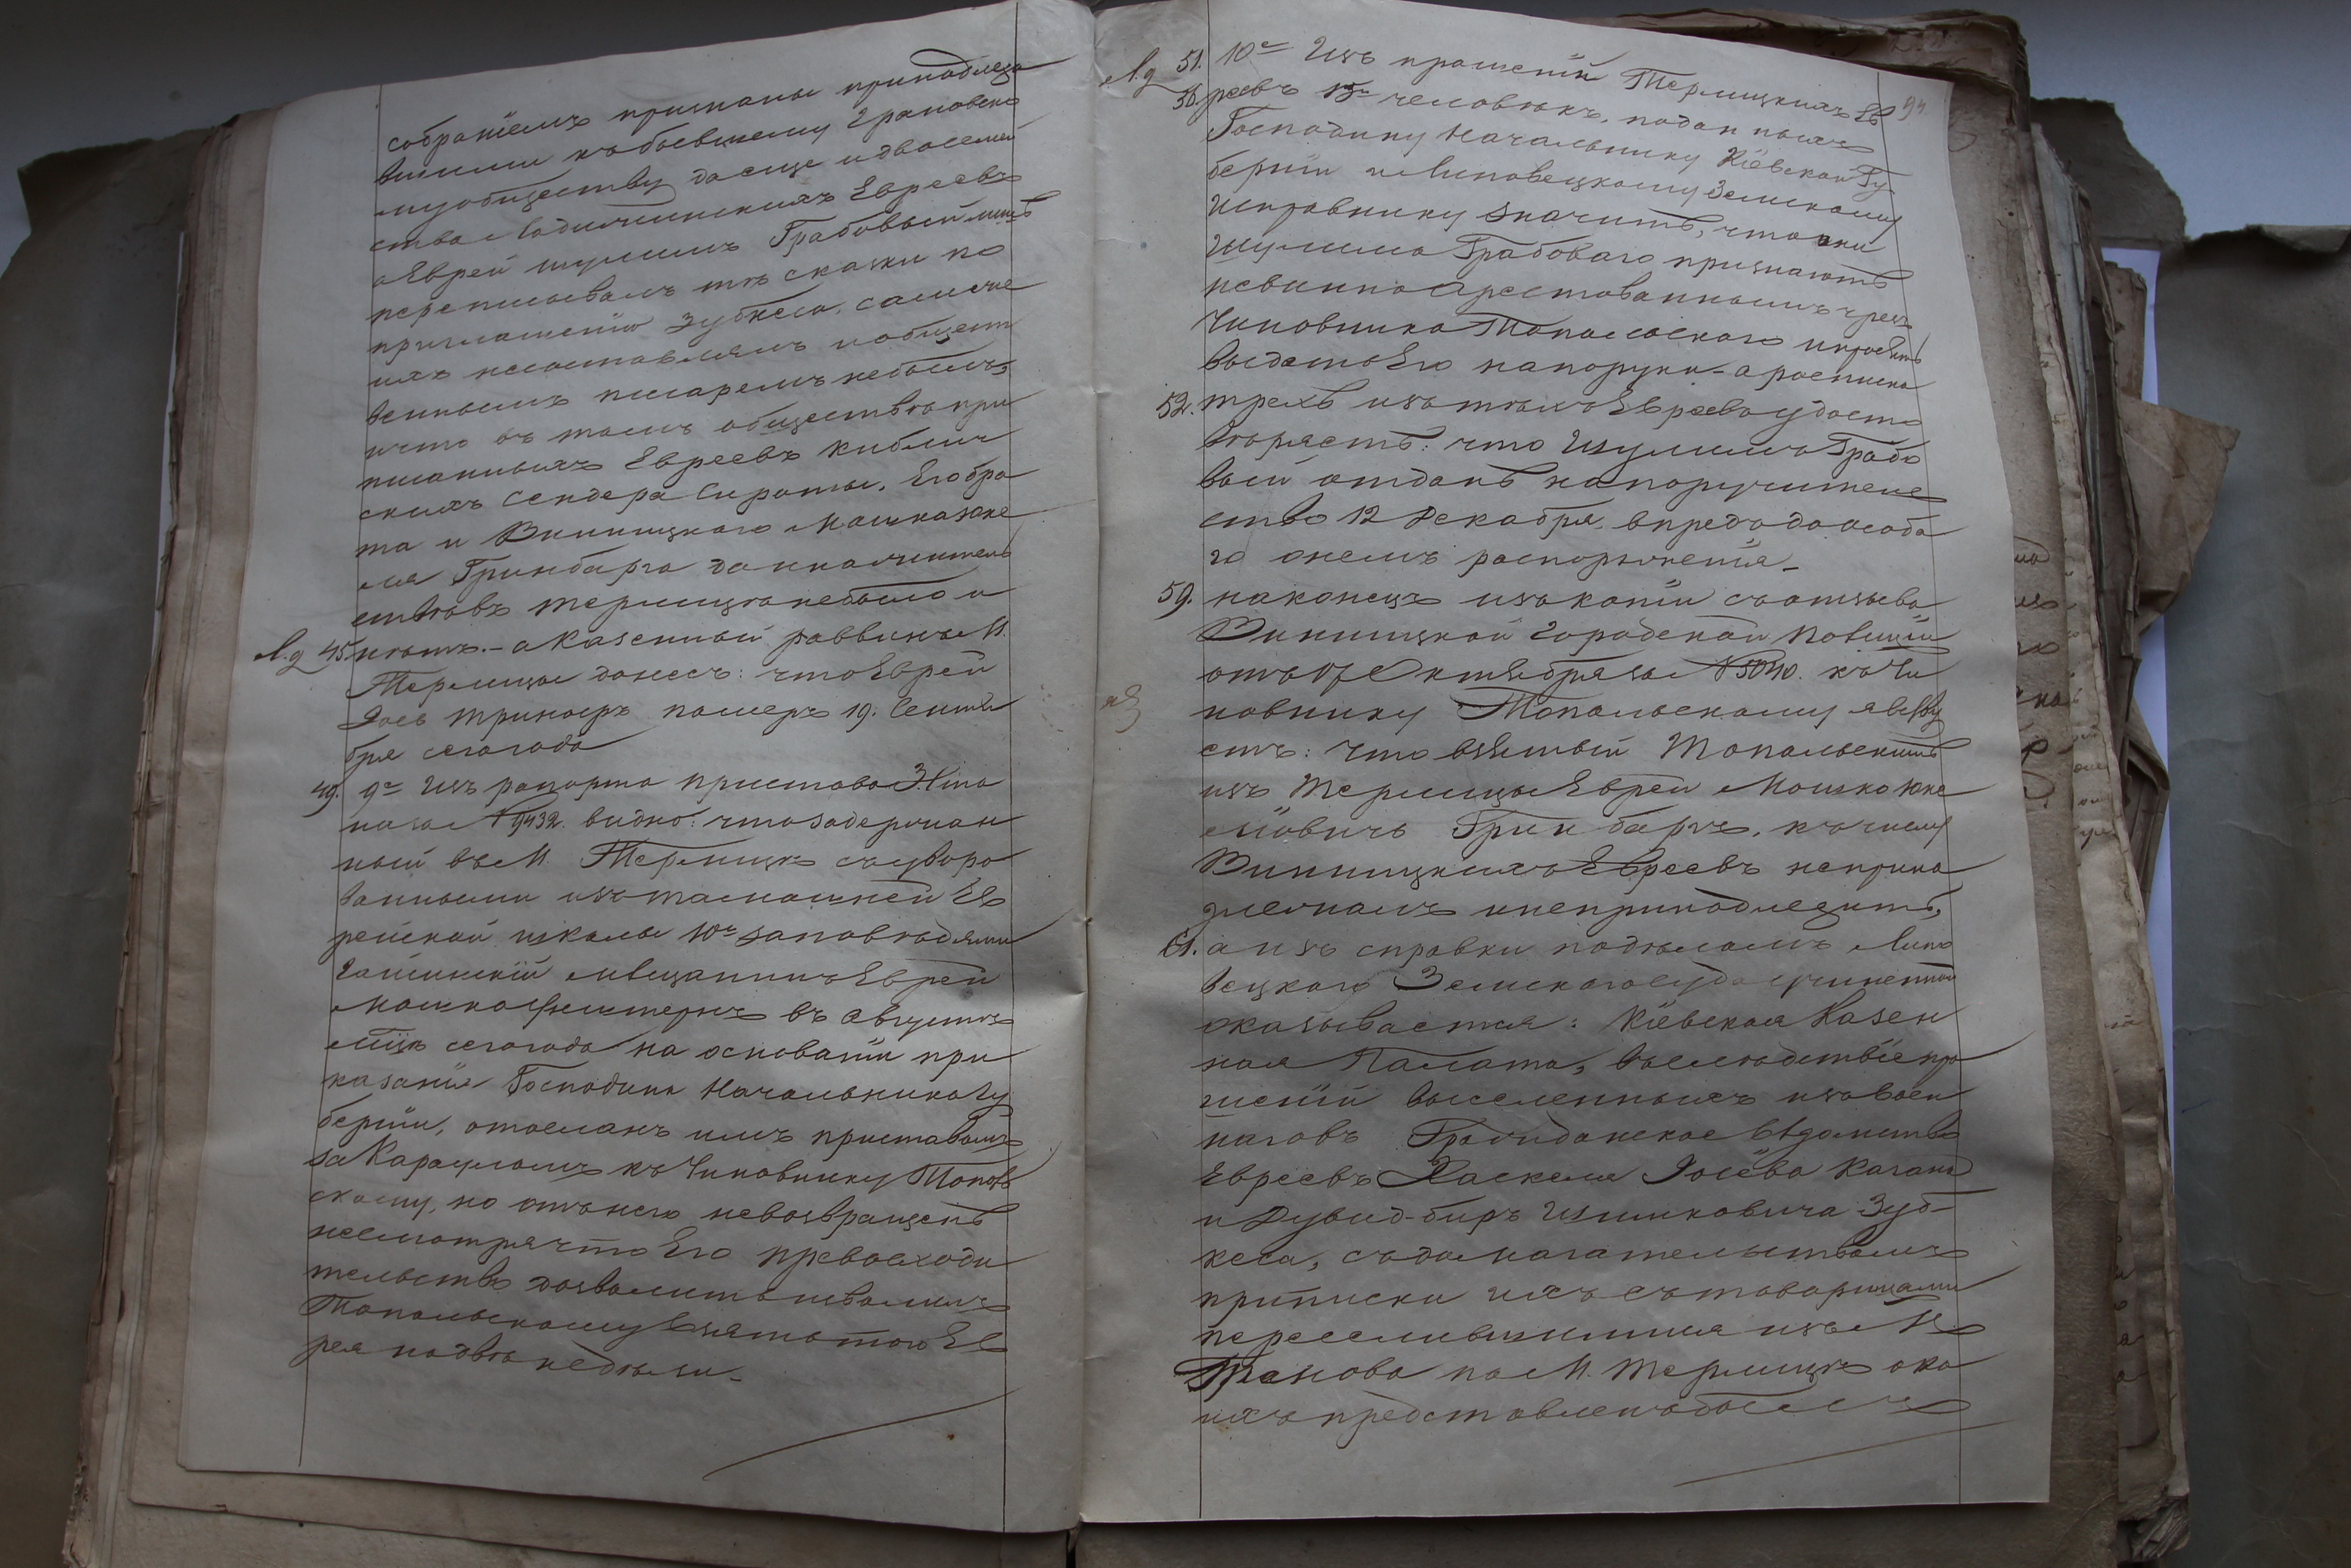 собраніемъ признаны принадлежа
вшими къ бывшему Грановско
му обществу да еще и двоемъ
ства Ладижинскихъ Евреевъ
а Еврей Шулимъ Грабовый лишь
переписывалъ тѣ сказки по
приглашенію Зубкеса, самъ же
ихъ несоставлялъ и общест
веннымъ писаремъ небылъ,
и что въ томъ обществѣ при
писанныхъ Евреевъ Кибличъ
скихъ Сендера Сироты, Его бра
та и Винницкаго Мошка Юке
ля Гринбарга да и на жительс
твѣ въ Терлицѣ небыло и
Л.д 45. нѣтъ. – а Казенный раввинъ М.
Терлицы донесъ: что Еврей
Іось Тринчеръ померъ 19. Сентя
бря сего года
49. 9е Изъ рапорта пристава 3. Ста
на за № 9432. видно: что задержан
ный въ М. Терлицѣ съ уворо
ванными изъ тамошней Ев
рейской школы 10ю заповѣдями
Гайсинскій мѣщанинъ Еврей
Мошко Фельштернъ въ Августѣ
м͞цѣ сего года на основаніи при
казанія Господина Начальника Гу
берніи, отосланъ имъ приставомъ
за Карауломъ къ Чиновнику Топол
скому, но отъ него невозвращенъ
несмотря что Его превосходи
тельство дозволить изволилъ
Топольскому взять того Ев
рея на двѣ недѣли –
94
Л.д 51. 10е Изъ прошеній Терлицкихъ Ев
58. реевъ 13ти человѣкъ, поданныхъ
Господину Начальнику Кіевской Гу
берніи и Липовецкому Земскому
Исправнику значитъ, что они
Шулима Грабоваго признаютъ
невинно арестованнымъ чрезъ
Чиновника Топольскаго и просятъ
выдать Его на поруки – а росписка
52. трехъ изъ тѣхъ Евреевъ удосто
вѣряетъ: что Шулимъ Грабо
вый отданъ на поручитель
ство 12 Декабря впредъ до особа
го о немъ распоряженія –
59. наконецъ изъ копіи съ отзыва
Винницкой Городской Полиціи
отъ 17 Октября за № 5040. къ Чи
новнику Топольскому явству
етъ: что взятый Топольскимъ
изъ Терлицы Еврей Мошко Юке
ліовичъ Гринбаргъ, къ числу
Винницкихъ Евреевъ неприна
длежалъ и непринадлежитъ,
61. а изъ справки по дѣламъ Липо
вецкаго Земскаго Суда учиненной
оказывается: Кіевская Казен
ная Палата, въ слѣдствіе про
шеній выселенныхъ изъ воен
наго въ Гражданское вѣдомство
Евреевъ Хаскеля Іосева Кагана
и Дувид-бирь Ицьковича Зуб-
кеса, съ домогательствомъ
приписки ихъ съ товарищами
переселившимися изъ М.
Гранова по М. Терлицѣ ока
ихъ представленъ былъ